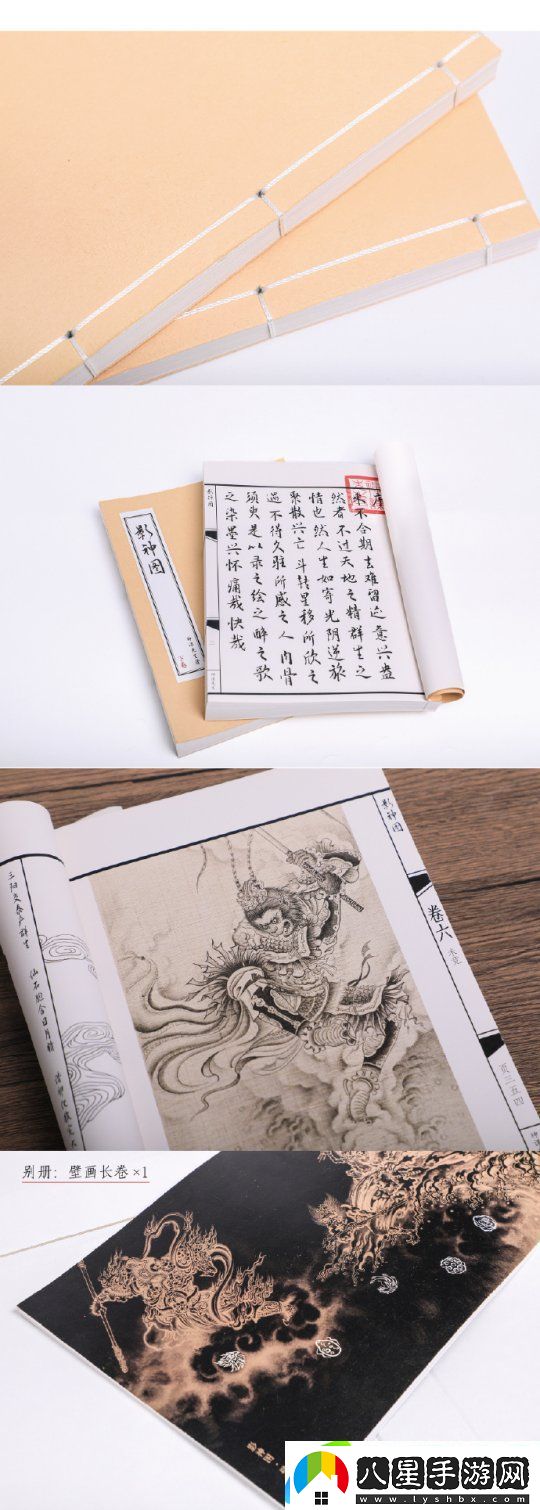 影神图
影神图
序
来不合期去难留迹意兴盎
然者不过天地之精群生之
情也然人生如寄光阴逆旅
聚散兴亡斗转星移所欣之
遇不得久驻所感之人肉骨
须臾是以录之绘之醉之歌
之染墨兴怀痛哉快哉
三阳交泰产群生
仙石胞含日月精
影神图
卷六
页二五四
别册：壁画长卷×1
八星手游网
www.lyshbx.com